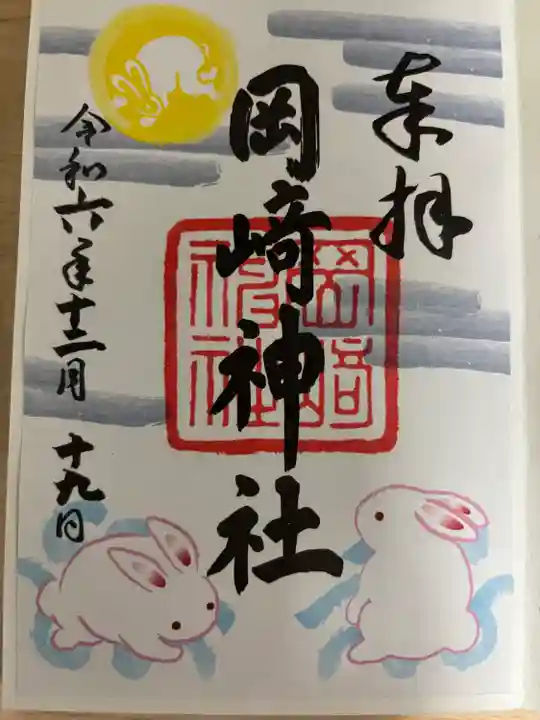 奉拝
岡﨑神社
岡崎神社
令和六年十二月十九日